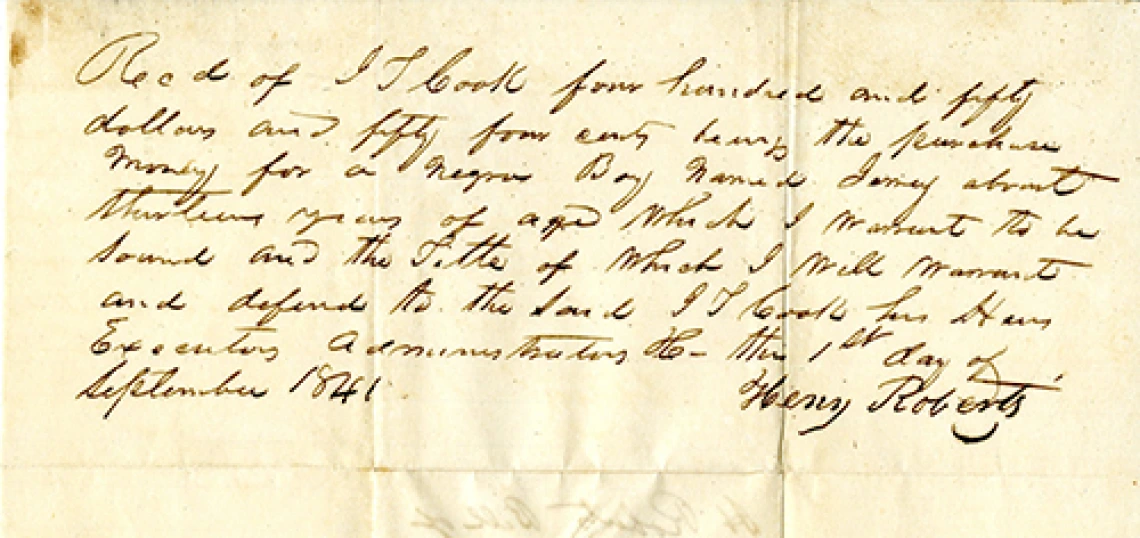 Recd of I T Cook four hundred and fifty
dollars and fifty four cents being the purchase
Money for a Negro Boy Named about
thirteen years of age Which I Warrant to be
sound and the Title of Which I Will Warrant
and defend to the Said I T Cook his Heirs
Executors Administrators &c the 1st day of
September 1841
Henry Roberts